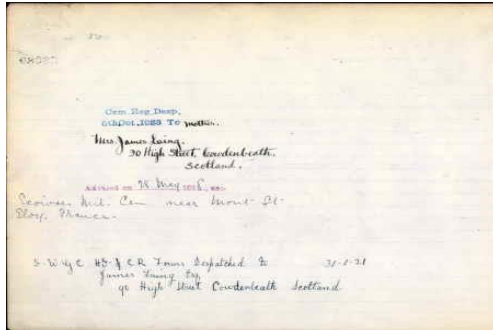 Cem. Reg. Desp.
6th Oct. 1923 To mother.
Mrs. James Laing.
90 High Street, Cowdenbeath.
Scotland.
Advised on 28 May
Ecoivres Mil. Cem near Mont-St-
Eloy. France.
I.W.G.C. Forms Despatched to 31-1-21
James Laing Esq
90 High Street Cowdenbeath Scotland